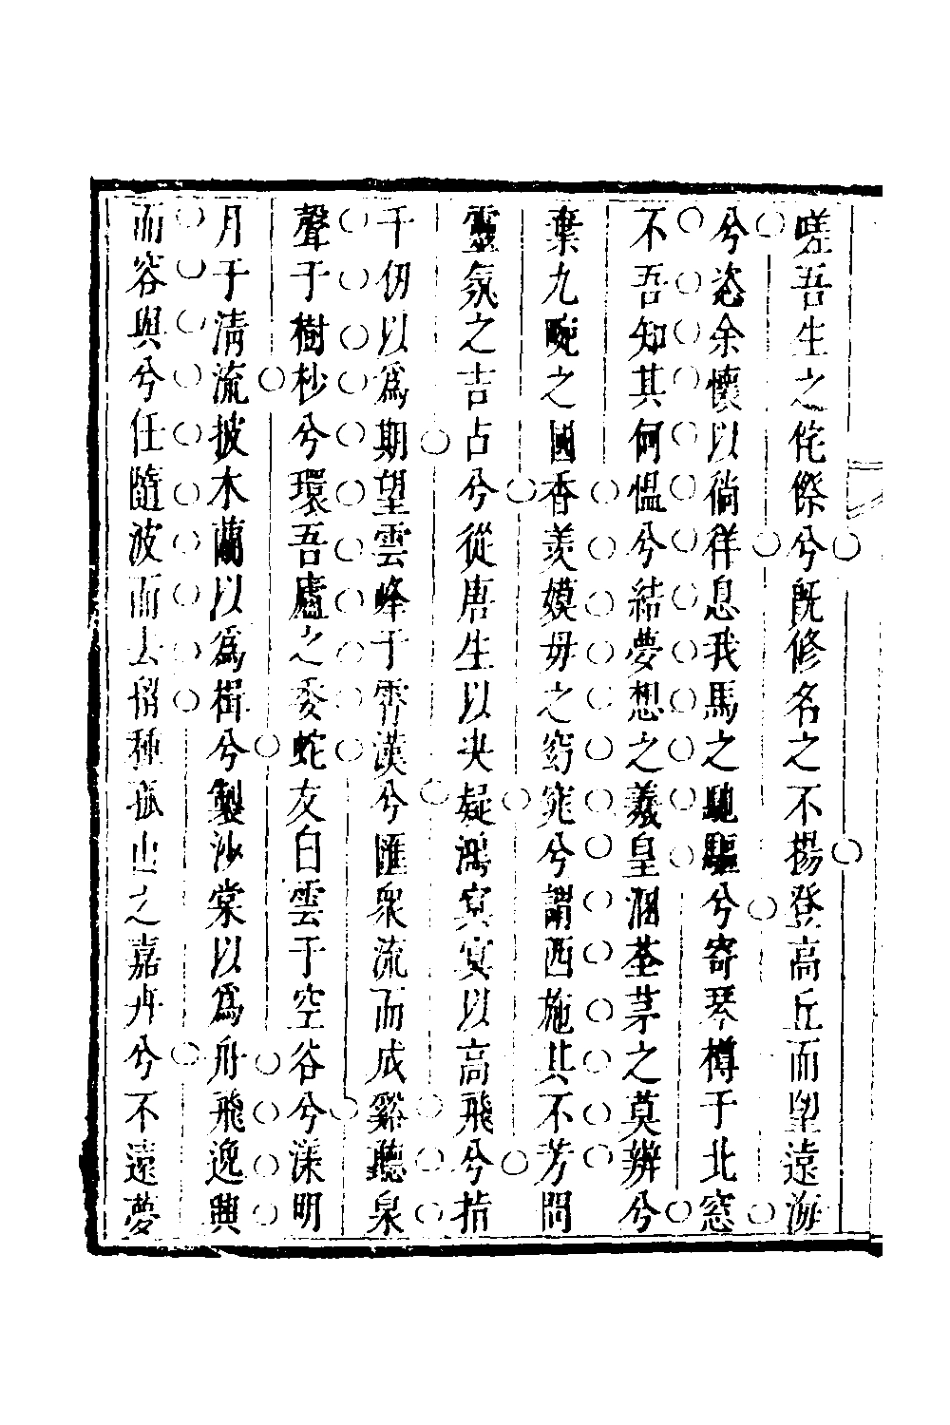 嗟吾生之侘傺兮旣修名之不揚登高丘而望遠海
兮恣余懷以徜徉息我馬之馳驅兮寄琴樽于北窓
不吾知其何慍兮結夢想之羲皇溷荃茅之莫辨兮
棄九畹之國香羨嫫毋之窈窕兮謂西施其不芳問
靈氛之吉占兮從唐生以决疑鴻宾宾以高飛兮指
千仞以爲期望雲峰于霄漢兮匯衆流而成谿聽泉
聲于樹杪兮環吾廬之委蛇友白雲于空谷兮漾明
月于清流披木蘭以爲楫兮製沙棠以爲舟飛逸興
而容與兮任隨波而去留種孤山之嘉卉兮不遠夢